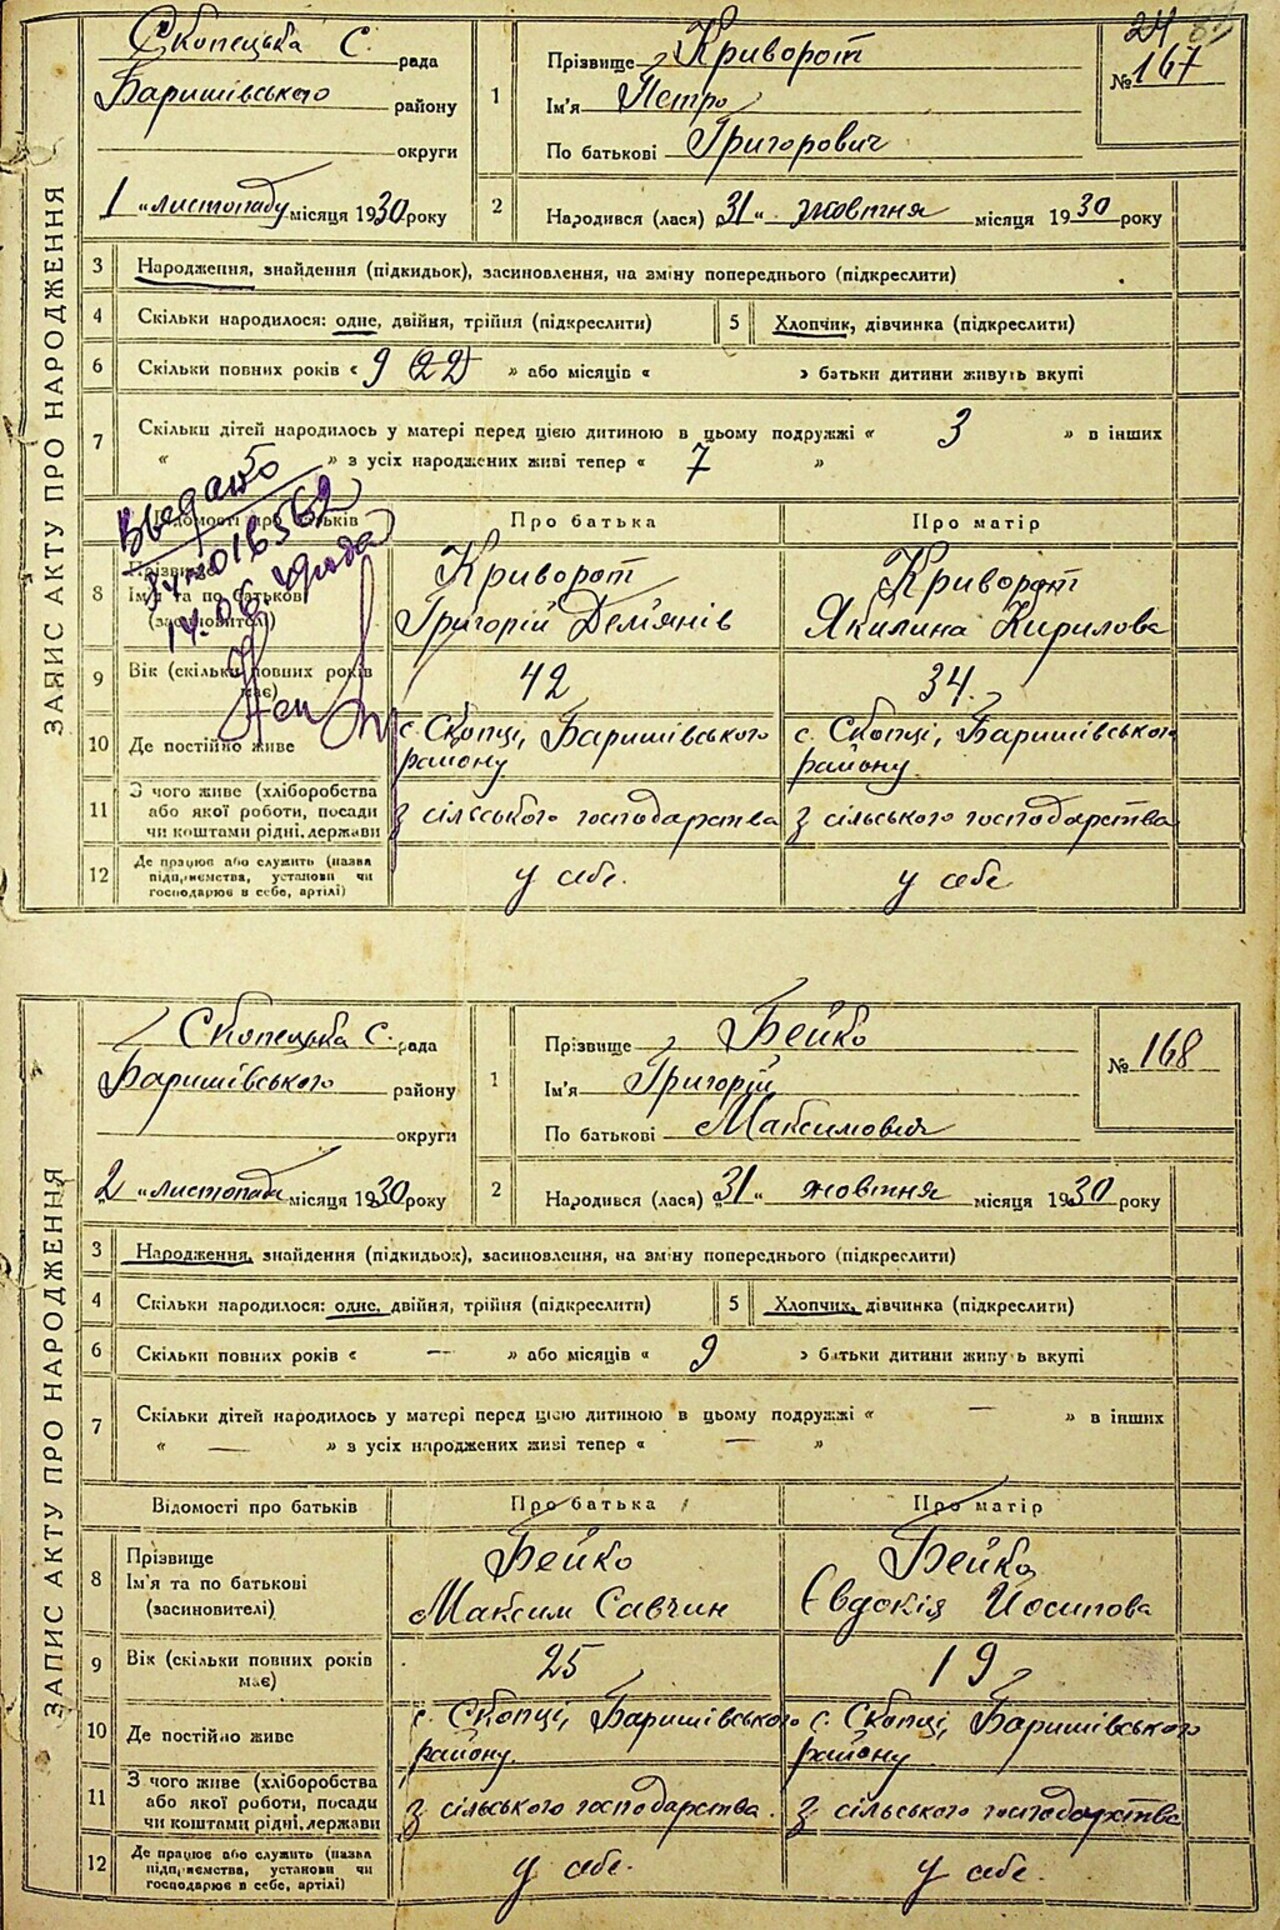 24
Скопецька С. рада
Прізвище Криворот
№ 167
Баришівського району
1
Ім'я Петро
округи
По батькові Григорович
1 "листопаду місяця 1930 року
2
Народився (лася) 31 " жовтня місяця 1930 року
ЗАПИС АКТУ ПРО НАРОДЖЕННЯ
3 Народження, знайдення (підкидьок), засиновлення, на зміну попереднього (підкреслити)
4 Скільки народилося: одне, двійня, трійня (підкреслити)
5 Хлопчик, дівчинка (підкреслити)
6 Скільки повних років « 9 (22) » або місяців « » батьки дитини живуть вкупі
7 Скільки дітей народилось у матері перед цією дитиною в цьому подружжі « 3 » в інших
« » з усіх народжених живі тепер « 7 »
Відомості про батьків
Про батька
Про матір
8 Прізвище
Ім'я та по батькові
(засиновителі)
Криворот
Григорій Дем'янів
Криворот
Якилина Кирилова
9 Вік (скільки повних років
має)
42
34
10 Де постійно живе
с. Скопці, Баришівського
району
с. Скопці, Баришівського
району
11 З чого живе (хліборобства
або якої роботи, посади
чи коштами рідні, держави
З сільського господарства
З сільського господарства
12 Де працює або служить (назва
підприємства, установи чи
господарює в себе, артілі)
у себе.
у себе
Скопецька С. рада
Прізвище Бейко
№ 168
Баришівського району
1
Ім'я Григорій
округи
По батькові Максимович
2 "листопада місяця 1930 року
2
Народився (лася) 31 " жовтня місяця 1930 року
ЗАПИС АКТУ ПРО НАРОДЖЕННЯ
3 Народження, знайдення (підкидьок), засиновлення, на зміну попереднього (підкреслити)
4 Скільки народилося: одне, двійня, трійня (підкреслити)
5 Хлопчик, дівчинка (підкреслити)
6 Скільки повних років « — » або місяців « 9 » батьки дитини живуть вкупі
7 Скільки дітей народилось у матері перед цією дитиною в цьому подружжі « — » в інших
« — » з усіх народжених живі тепер « — »
Відомості про батьків
Про батька
Про матір
8 Прізвище
Ім'я та по батькові
(засиновителі)
Бейко
Максим Савчин
Бейко
Євдокія Йосипова
9 Вік (скільки повних років
має)
25
19
10 Де постійно живе
с. Скопці, Баришівського
району.
с. Скопці, Баришівського
району
11 З чого живе (хліборобства
або якої роботи, посади
чи коштами рідні, держави
З сільського господарства.
З сільського господарства
12 Де працює або служить (назва
підприємства, установи чи
господарює в себе, артілі)
у себе.
у себе.